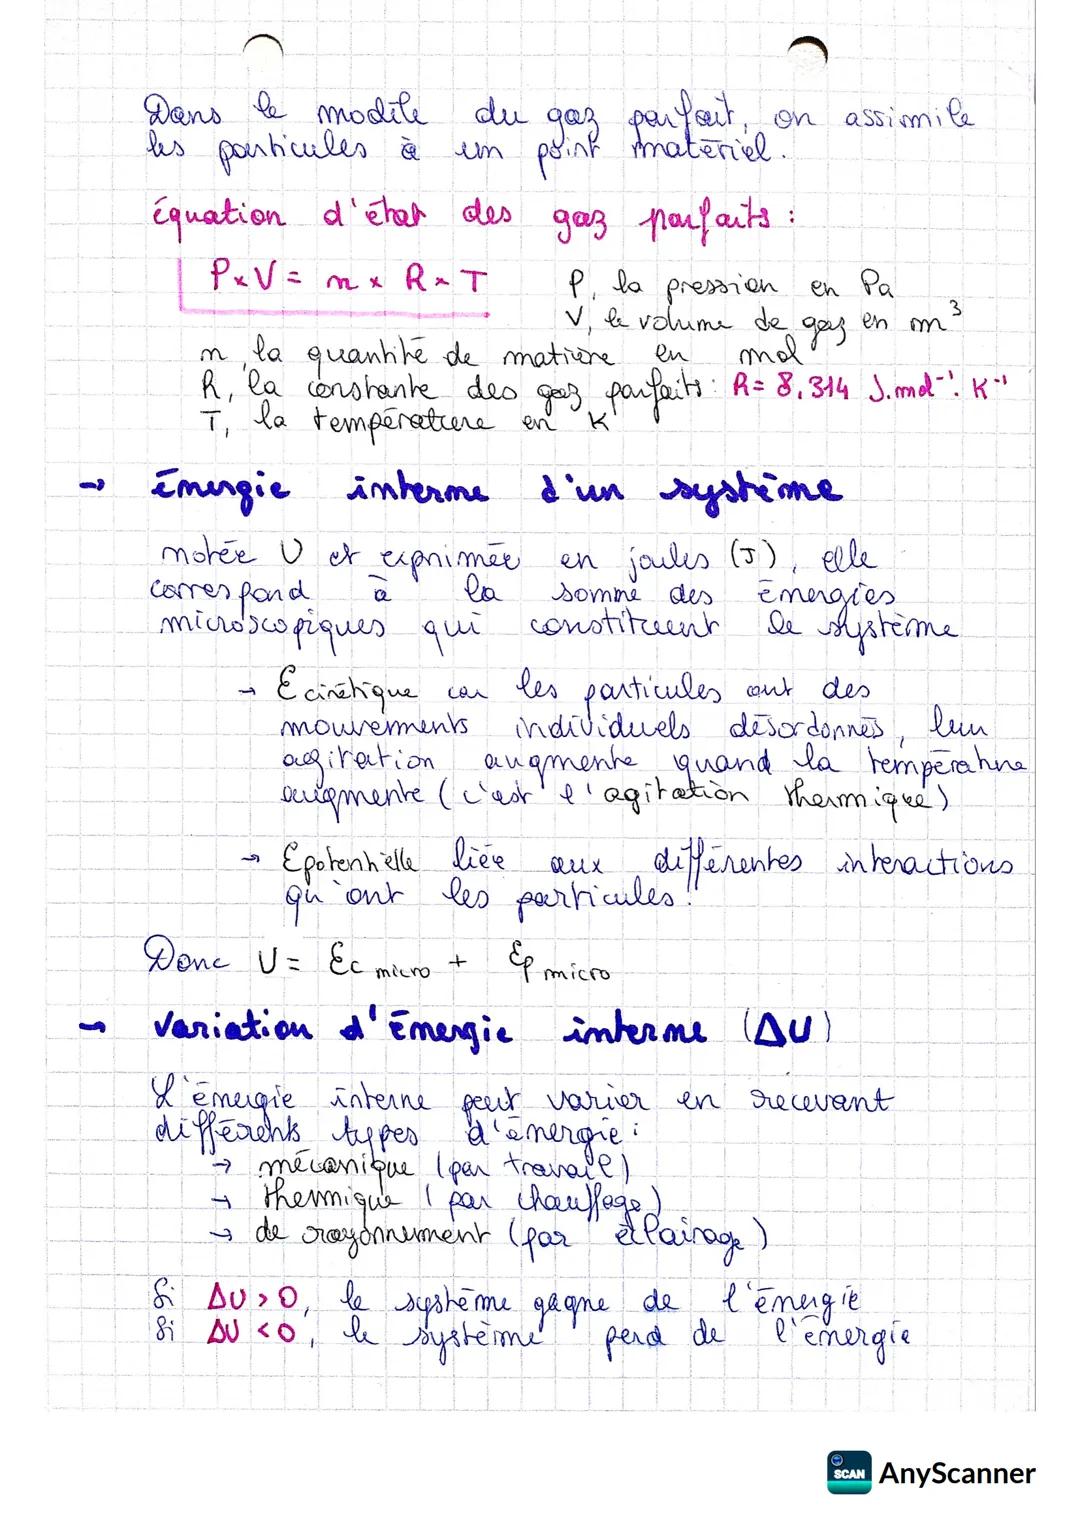 Dans le modèle du gaz parfait, on assimile
les particules à un point matériel.
équation d'état des gaz parfaits :
P x V = n x R x T
P, la pression en Pa
V, le volume de gaz en m³
n, la quantité de matière en mol
R, la constante des gaz parfaits : R = 8,314 J.mol⁻¹.K⁻¹
T, la température en K
→ Énergie interne d'un système
notée U et exprimée en joules (J), elle
correspond à la somme des énergies
microscopiques qui constituent le système
→ Ecinétique car les particules ont des
mouvements individuels désordonnés, leur
agitation augmente quand la température
augmente (c'est l'agitation thermique)
→ Epotentielle liée aux différentes interactions
qu'ont les particules.
Donc U = Ec micro + Ep micro
→ Variation d'Énergie interne (ΔU)
L'énergie interne peut varier en recevant
différents types d'énergie :
→ mécanique (par travail)
→ thermique (par chauffage)
→ de rayonnement (par éclairage)
Si ΔU > 0, le système gagne de l'énergie
Si ΔU < 0, le système perd de l'énergie
SCAN AnyScanner